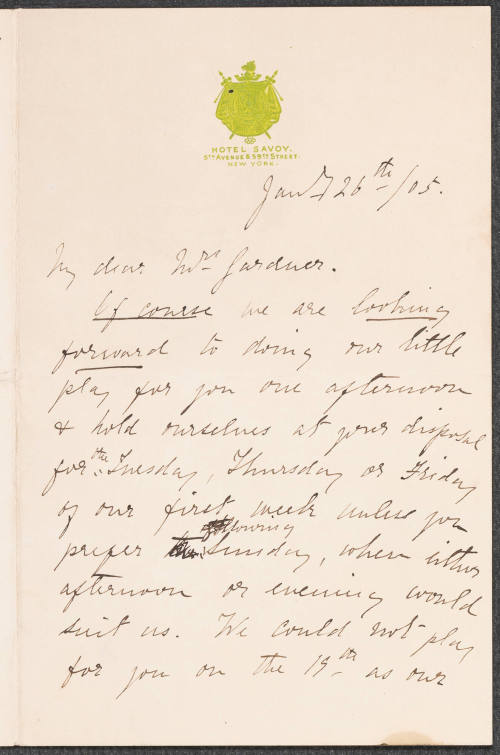 HOTEL SAVOY.
5TH AVENUE & 59TH STREET.
NEW YORK.
Jany 26th/05.
My dear Mrs Gardner.
Of course we are looking
forward to doing our little
play for you one afternoon
& hold ourselves at your disposal
for the Tuesday, Thursday or Friday
of our first week unless you
prefer following Sunday, when either
afternoon or evening would
suit us. We could not play
for you on the 19th as our